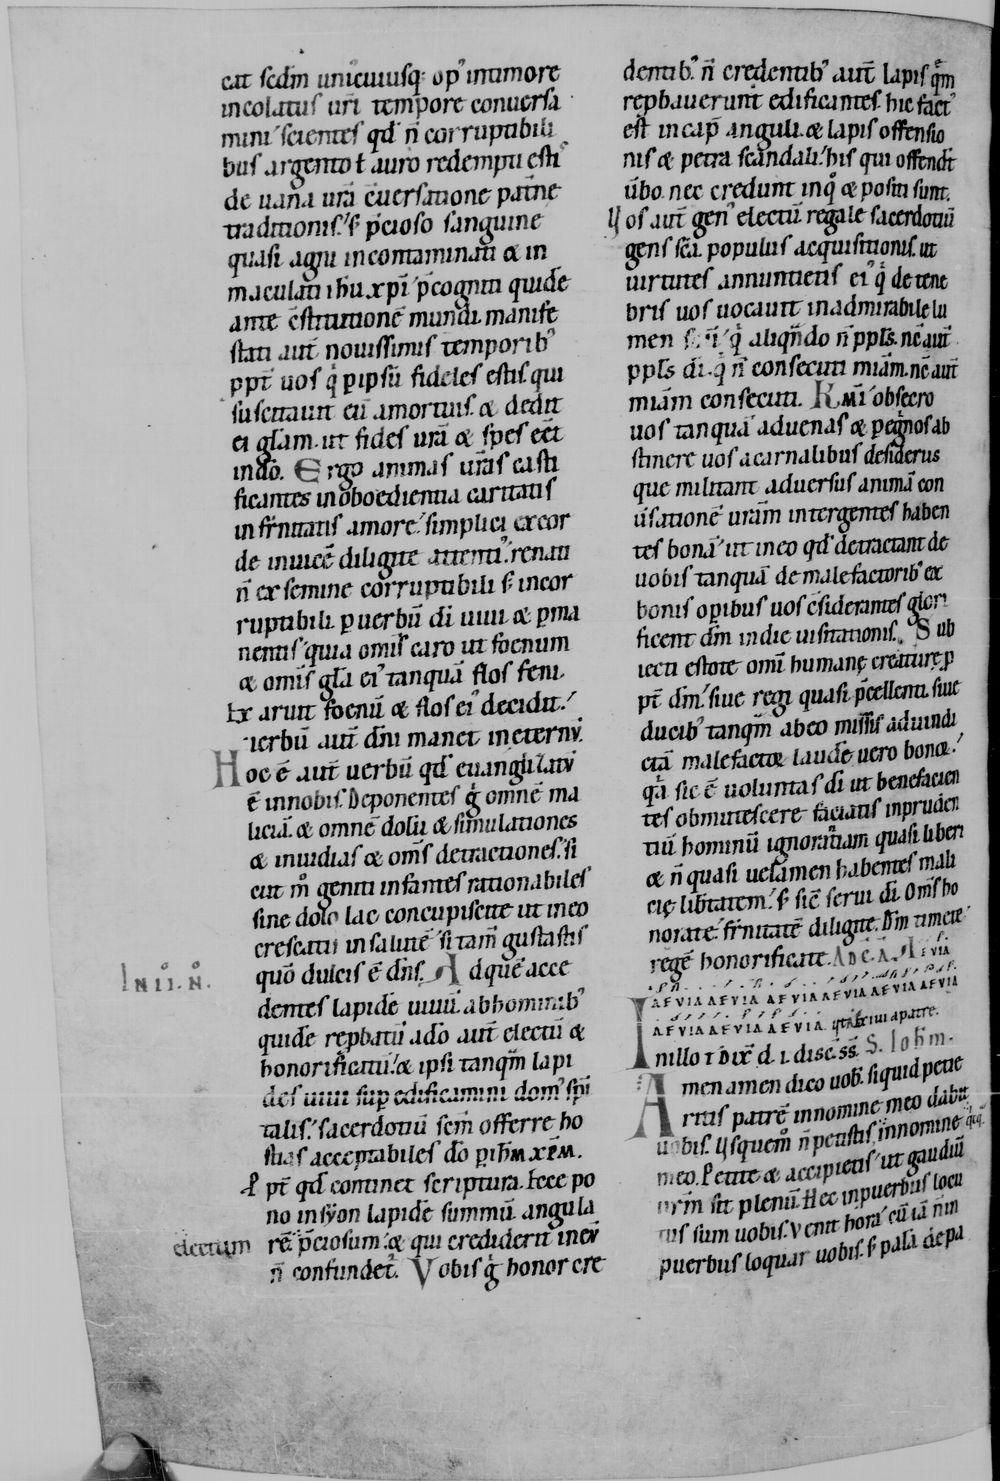 cat scd̄m unicuiusq; op᾽ intimore
incolatus ur̄i tempore conuersa
mini᾽ scientes qd̄ n̄ corruptibili
bus argento ł auro redempti estis
de uana ur̄a c̄uersatione pat̄ne
traditionis.᾽ s; p̄cioso sanguine
quasi agni incontaminati & in
maculati ih̄u xp̄i᾽ p̄cogniti quidē
ante c̄stitutionē mundi. manife
stati aut̄ nouissimis temporib᾽
ppt̄ uos q̇ pipsū fideles estis. qui
suscitauit eū amortuis. & dedit
ei gl̄am. ut fides ur̄a & spes ēēt
indō. Ergo animas ur̄as casti
ficantes inoboedientia caritatis
in fr̄nitatis amore᾽ simplici excor
de inuicē diligite attenti᾽ renati
n̄ ex semine corruptibili s; incor
ruptibili p uerbū dī uiui & pma
nentis᾽ quia omīs caro ut foenum
& omīs gl̄a ei᾽ tanquā flos feni.
Ex aruit foenū & flos ei᾽ decidit.᾽
Uerbū aut̄ dn̄i manet in eternū.
Hoc ē aut̄ uerbū qd̄ euangīlatū
ē innobis. Deponentes ġ omnē ma
liciā. & omnē dolū & simulationes
& inuidias & om̄s detractiones.᾽ si
cut m̊ geniti infantes rationabiles
sine dolo lac concupiscite ut ineo
crescatis in salutē᾽ si tam̄ gustastis
quō dulcis ē dn̄s. Ad quē acce
dentes lapidē uiuū. abhominib᾽
quidē rep̱batū᾽ adō aut̄ electū &
honorificatū.᾽ & ipsi tanqm̄ lapi
des uiui sup̱ edificamini dom᾽ sp̄i
talis.᾽ sacerdotiū sc̄m offerre ho
stias acceptabiles dō p̱ ih̄m xp̄m.
Ppt̄ qd̄ continet scriptura. Ecce po
no in syon lapidē summū angula
rē p̄ciosum.᾽ & qui crediderit ineū
n̄ confundet᾽. Vobis ġ honor cre
Inii.N̊.
electum
dentib᾽. n̄ credentib᾽ aut̄ lapis qm̄
rep̱bauerunt edificantes. hic fact᾽
est incap̄ anguli. & lapis offensio
nis & petra scandali.᾽ his qui offend̄t
ūbo. nec credunt inq̊ & positi sunt.
Uos aut̄ gen᾽ electū regale sacerdotiū
gens sc̄a. populus acquisitionis. ut
uirtutes annuntietis ei᾽ q̇ de tene
bris uos uocauit inadmirabile lu
men suū᾽ q̇ aliqn̄do n̄ ppl̄s. nc̄ aut̄
ppl̄s dī. q̇ n̄ consecuti miām. nc̄ aut̄
miām consecuti. Km̄i᾽ obsecro
uos tanquā aduenas & pegrinos ab
stinere uos acarnalibus desideriis
que militant aduersus animā con
uīsationē uram̄ intergentes haben
tes bonā᾽ ut ineo qd̄ detractant de
uobis tanquā de malefactorib᾽ ex
bonis op̱ibus uos c̄siderantes glori
ficent dm̄ in die uisitationis. Sub
iecti estote omī humanę creaturę p̱
pt̄ dm̄.᾽ siue regi quasi p̄cellenti siue
ducib᾽ tanqm̄ abeo missis aduindi
ctā malefactor laudē uero bonor.᾽
qa̍ sic ē uoluntas dī ut benefacien
tes obmutescere faciatis inpruden
tiū hominū ignorantiam quasi liberi
& n̄ quasi uelamen habentes mali
cię lib̄tatem.᾽ s; sic̄ serui dī. Om̄s ho
norate.᾽ fr̄nitatē diligite. Dm̄ timete᾽
regē honorificate. Ad c. A. AEVIA
AEVIA AEVIA AEVIA AEVIA AEVIA
AEVIA AEVIA AEVIA. exiui apatre.
Inillo t̄ dix̄ d. i. disc. ss̄. S. Iohm.
Amen amen dico uob. si quid petie
ritis patrē innomine meo dabit
uobis. Usquem̊ n̄ petistis innomine
meo. Petite & accipietis᾽ ut gaudiū
urm̄ sit plenū. Hec inp̱uerbiis locu
tus sum uobis. Venit hora᾽ cū iā n̄ in
puerbiis loquar uobis. s; palā de pa